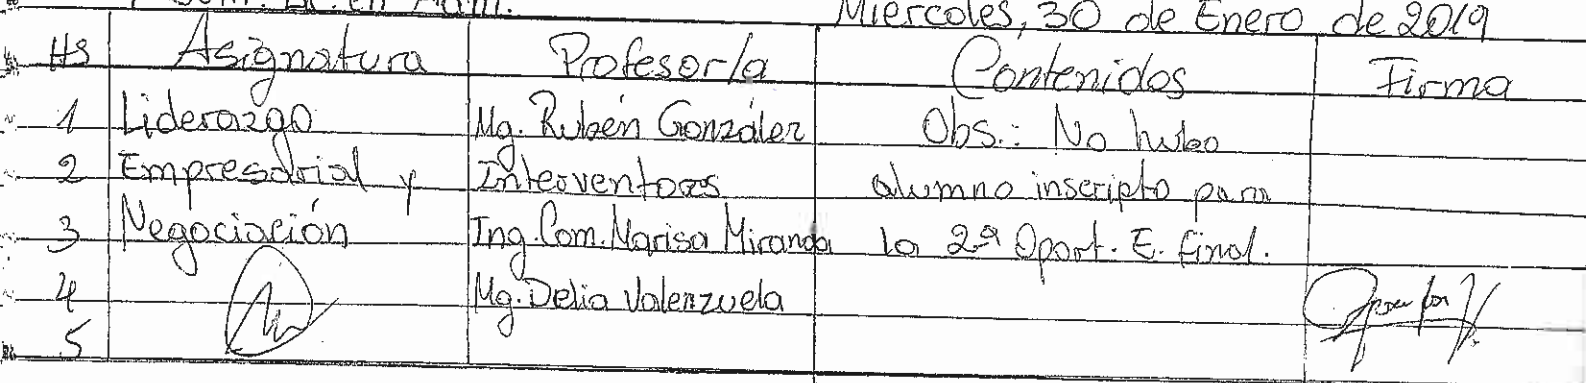 Miércoles, 30 de Enero de 2019
Hs Asignatura Profesor/a Contenidos Firma
1 Liderazgo Mg. Rubén González Obs.: No hubo
2 Empresarial y Interventores alumno inscripto para
3 Negociación Ing. Com. Marisa Miranda la 2ª Oport. E. final.
4 Mg. Delia Valenzuela
5